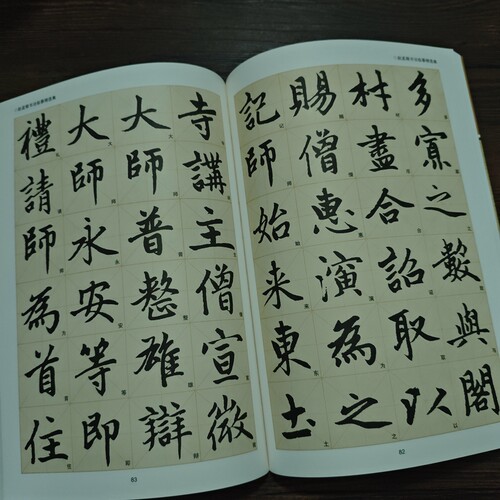 多寡之數與閣
材盡合詔取以
賜僧惠演為之
記師始来東土
82
寺講主僧宣微
大師普整雄辯
大師永安等即
禮請師為首住
83